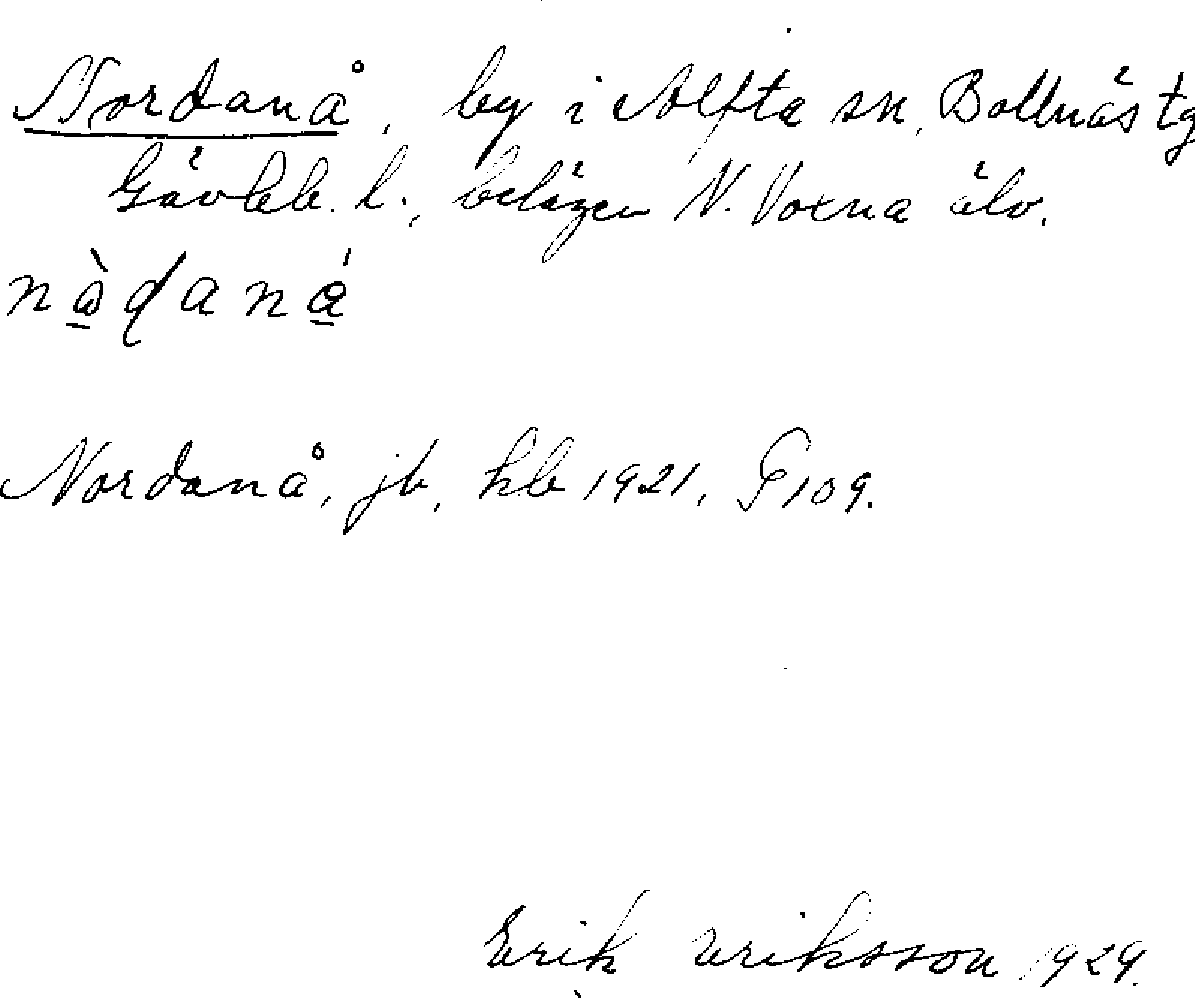 Nordanå, by i Alfta sn, Bollnäs tg
Gävleb. l., belägen N. Voxna älv.
Nordanå, jb, hb 1921, G 109.
Erik Eriksson 1929.